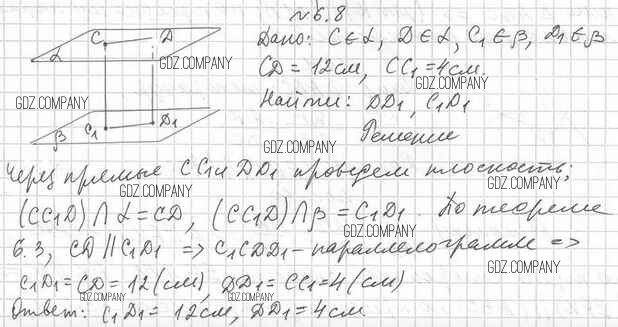 №6.8
Дано: C∈α, D∈α, C₁∈β, D₁∈β
CD = 12см, CC₁ = 4см.
Найти: DD₁, C₁D₁
Решение
C D
α
C₁ D₁
β
Через прямые CC₁ и DD₁ проведем плоскость;
(CC₁D)∩α=CD, (CC₁D)∩β=C₁D₁. По теореме
6.3, CD∥C₁D₁ => C₁CDD₁-параллелограмм =>
C₁D₁=CD=12(см), DD₁=CC₁=4(см)
Ответ: C₁D₁= 12см, DD₁= 4см.
GDZ.COMPANY
GDZ.COMPANY
GDZ.COMPANY
GDZ.COMPANY
GDZ.COMPANY
GDZ.COMPANY
GDZ.COMPANY
GDZ.COMPANY
GDZ.COMPANY
GDZ.COMPANY
GDZ.COMPANY